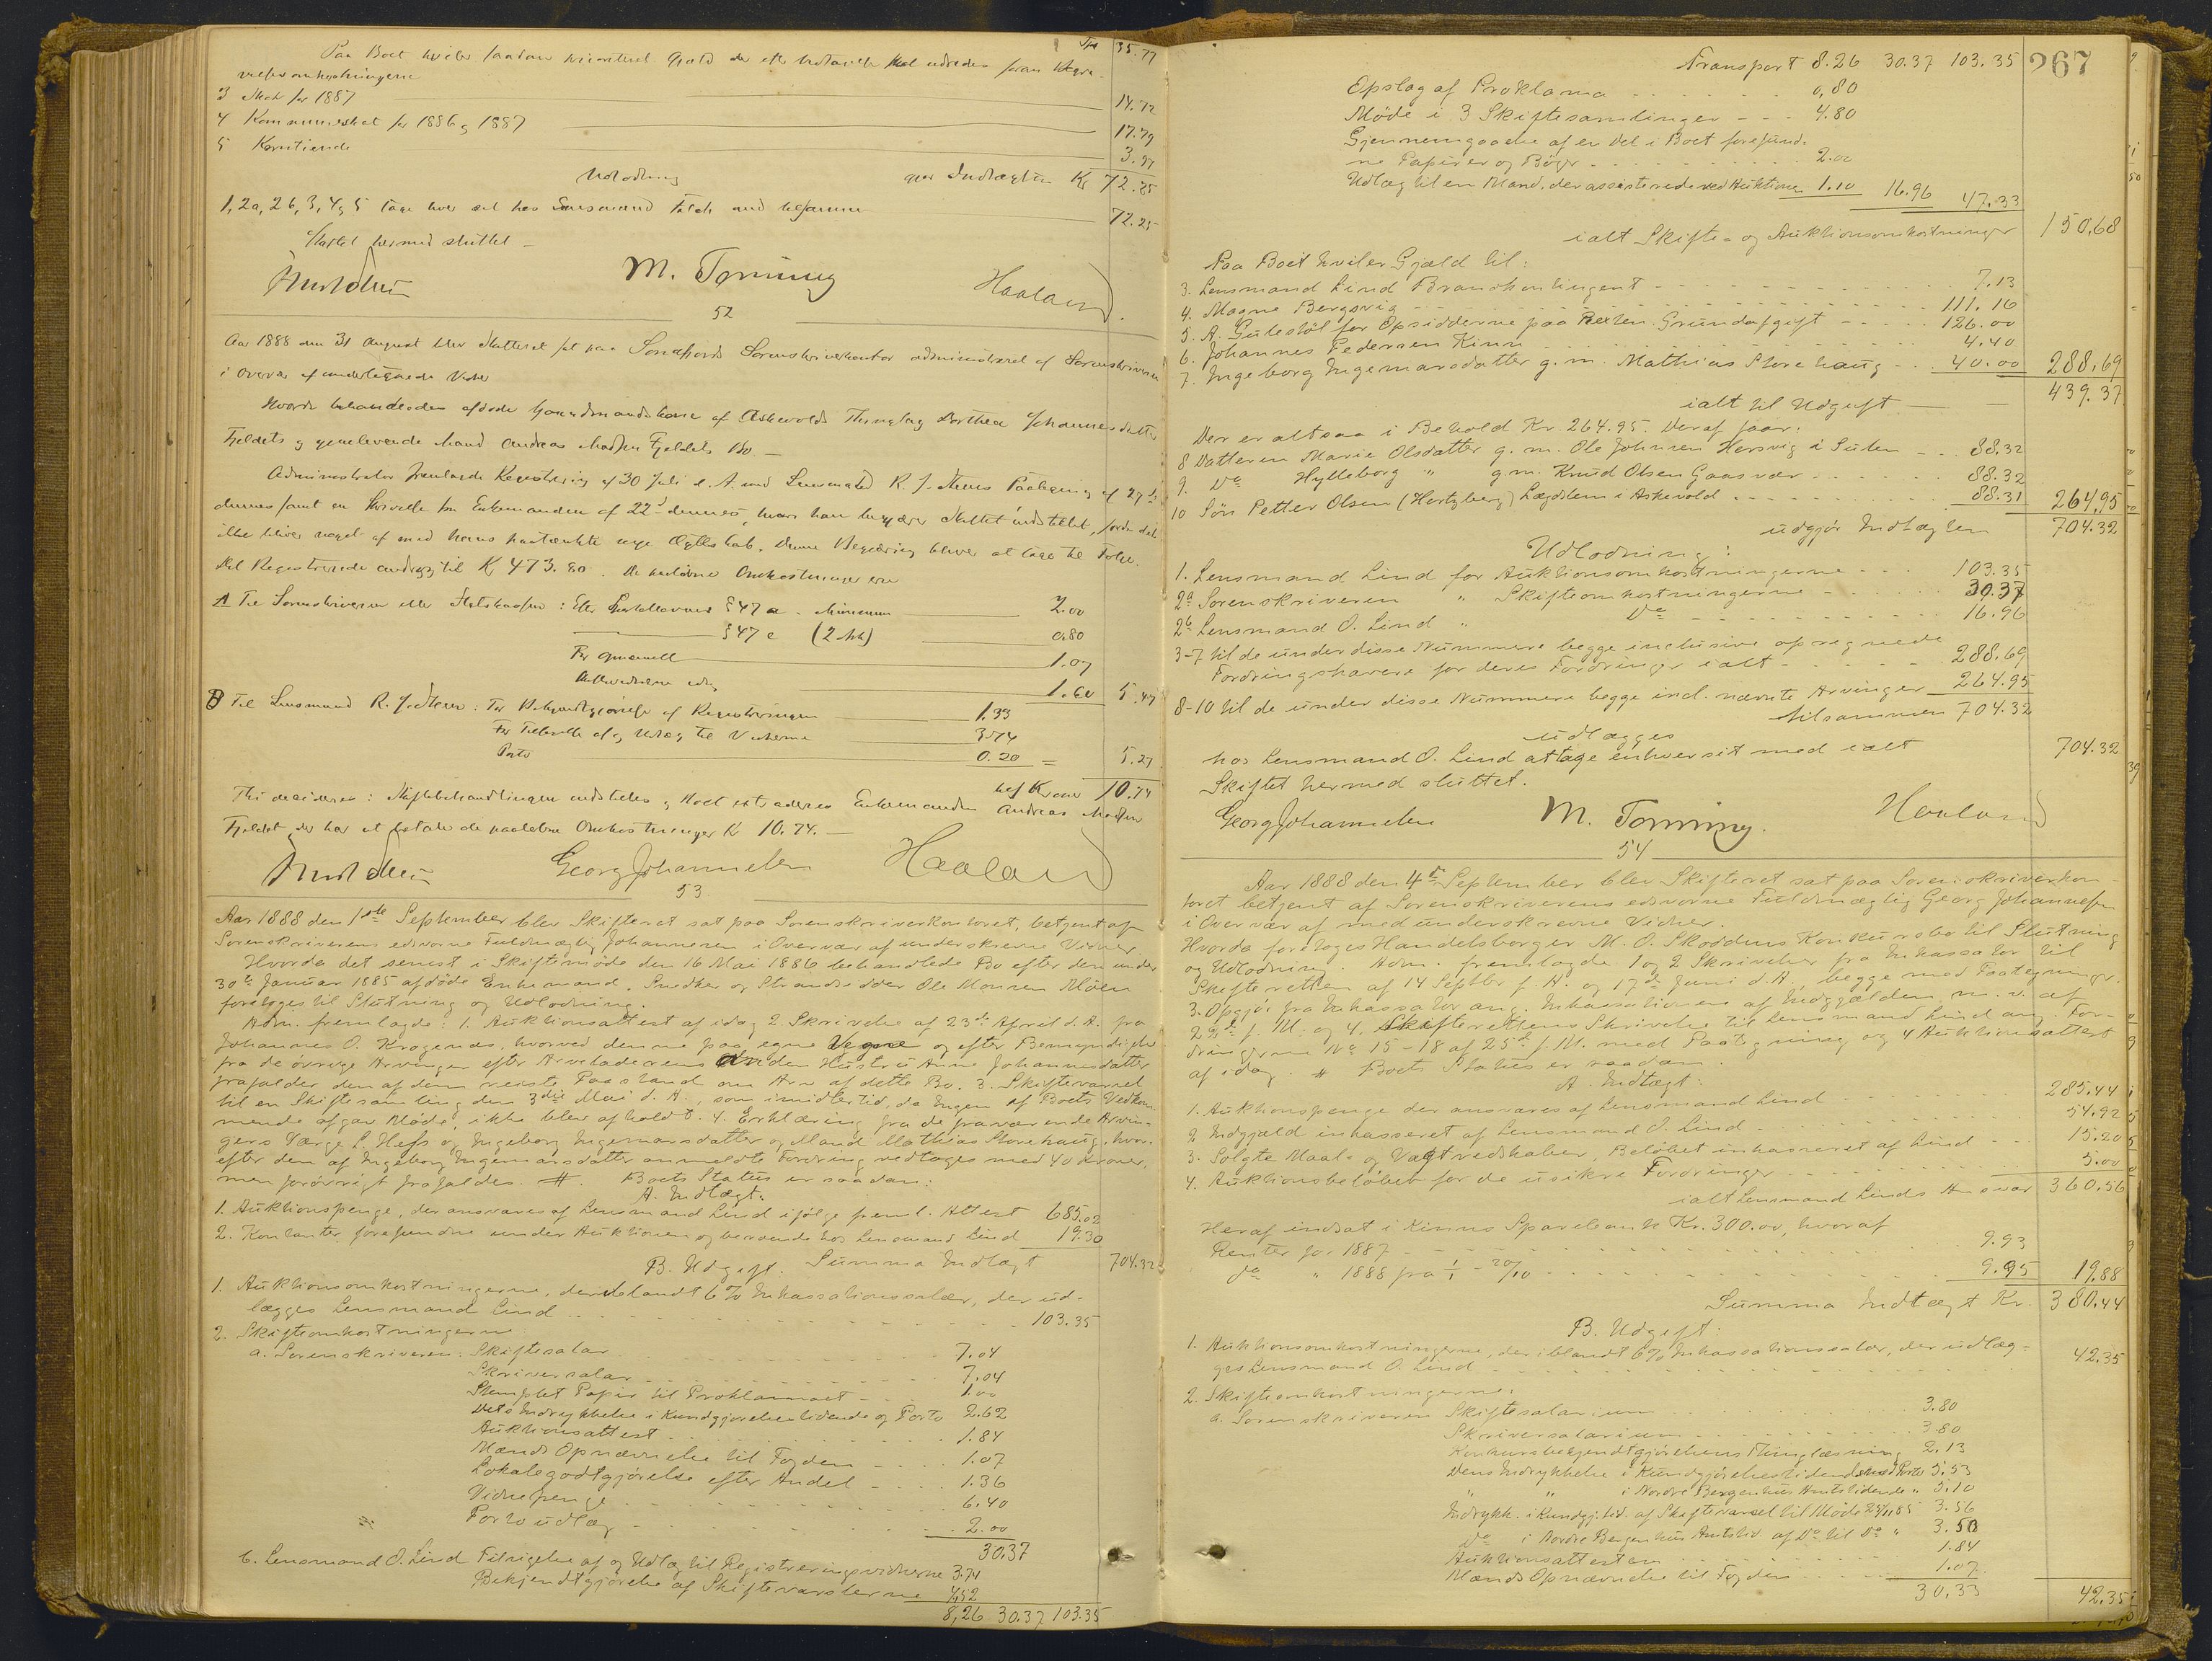 Tr 35.77
Paa Boet hviler saadan prioriteret Gjæld der efter Indtægten skal udredes foran Begra-
velsesomkostningerne
3 Skat for 1887 14.72
4 Kommuneskat for 1886 og 1887 17.79
5 Korntiende 3.97
Udlodning gaar Indtægten Kr 72.25
1, 2a, 2b, 3, 4 og 5 tage hver sit hos Lensmand med tilsammen 72.25
Skiftet hermed sluttet –
M. Torning Haaland
52
Aar 1888 den 31 August blev Skifteret sat paa Søndfjords Sorenskriverkontor administreret af Sorenskriveren
i Overvær af undertegnede Vidner
Hvorda behandledes afdøde Gaardmandskone af Askevolds Thinglag Dorthea Johannesdatter
Fjeldets og gjenlevende Mand Andreas Madsen Fjeldets Bo. –
Administrator fremlagde Registrering af 30 Juli d. A. med Lensmand R. J. Paategning af 29de
dennes samt en Skrivelse fra Enkemanden af 22de dennes, hvori han begjærer Skiftet indstillet, fordi det
ikke bliver noget af med hans paatænkte nye Ægteskab. Denne Begjæring bliver at tage til Følge.
Det Registrerede andrager til Kr 473.80. De paaløbne Omkostninger ere
A Til Sorenskriveren eller Statskassen: Efter Sportelloven §47 a. Minimum 2.00
§47 c (2 ) 0.80
For 1.07
1.60 5.47
B Til Lensmand R. J. : For Bekjendtgjørelse af Registreringen 1.33
For Tilsigelse af og Udlæg til Vidnerne 3.74
Porto 0.20 = 5.27
tils. Kroner 10.74
Thi decideres: Skiftebehandlingen indstilles og Boet extraderes Enkemanden Andreas Madsen
Fjeldet, der har at betale de paaløbne Omkostninger Kr 10.74. –
Georg Johannessen Haaland
53
Aar 1888 den 1ste September blev Skifteret sat paa Sorenskriverkontoret, betjent af
Sorenskriverens edsvorne Fuldmægtig Johannesen i Overvær af underskrevne Vidner.
Hvorda det senest i Skiftemøde den 16 Mai 1886 behandlede Bo efter den under
30te Januar 1885 afdøde Enkemand, Snedker og Strandsidder Ole Monsen Moen
foretoges til Slutning og Udlodning.
Adm. fremlagde: 1. Auktionsattest af idag 2. Skrivelse af 23de April d. A. fra
Johannes O. Krogenes, hvorved denne paa egne Vegne og efter Bemyndigelse
fra de øvrige Arvinger efter Arveladerens anden Hustru Anne Johannesdatter
frafalder den af dem reiste Paastand om Arv af dette Bo. 3. Skiftevarsel
til en Skiftesamling den 3die Mai d. A., som imidlertid, da Ingen af Boets Vedkom-
mende afgav Møde, ikke blev afholdt. 4. Erklæring fra de fraværende Arvin-
gers Værge L. Hess og Ingeborg Ingemarsdatter og Mand Mathias Storehaug, hvor-
efter den af Ingeborg Ingemarsdatter anmeldte Fordring vedtages med 40 Kroner,
men forøvrigt frafaldes. # Boets Status er saadan:
A. Indtægt:
1. Auktionspenge, der ansvares af Lensmand Lind ifølge freml. Attest 685.02
2. Kontanter forefundne under Auktionen og beroende hos Lensmand Lind 19.30
Summa Indtægt 704.32
B. Udgift.
1. Auktionsomkostningerne, deriblandt 6% Inkassationssalær, der ud-
lægges Lensmand Lind 103.35
2. Skifteomkostningerne
a. Sorenskriveren: Skiftesalær 7.04
Skriversalær 7.04
Stemplet Papir til Proklamaet 1.00
Dets Indrykkelse i Kundgjørelsestidende og Porto 2.62
Auktionsattest 1.84
Mænds Opnævnelse til Fogden 1.07
Lokalegodtgjørelse efter Andel 1.36
Vidnepenge 6.40
Portoudlæg 2.00
30.37
b. Lensmand O. Lind Tilsigelse af og Udlæg til Registreringsvidnerne 3.74
Bekjendtgjørelse af Skiftevarslerne 4,52
8,26 30.37 103.35
267
Transport 8.26 30.37 103.35
Opslag af Proklama 0,80
Møde i 3 Skiftesamlinger 4.80
Gjennemgaaelse af en Del i Boet forefund-
ne Papirer og Bøger 2.00
Udlæg til en Mand, der assisterede ved Auktionen 1.10 16.96 47.33
ialt Skifte- og Auktionsomkostninger 150,68
Paa Boet hviler Gjæld til:
3. Lensmand Lind Brandkontingent 7.13
4. Magne Bergsvig 111.16
5. A. Gulestøl for Opsidderne paa Rexten Grundafgift 126.00
6. Johannes Pedersen Kinn 4.40
7. Ingeborg Ingemarsdatter g. m. Mathias Storehaug 40.00 288,69
ialt til Udgift 439.37
Der er altsaa i Behold Kr. 264.95. Deraf faar:
8 Datteren Marie Olsdatter g. m. Ole Johnsen Hersvig i Sulen 88.32
9. Do Hylleborg " g.m. Knud Olsen Gaasvær 88.32
10 Søn Petter Olsen (Hertzberg) Lægdslem i Askevold 88.31 264,95
udgjør Indtægten 704.32
Udlodning:
1. Lensmand Lind for Auktionsomkostningerne 103.35
2a Sorenskriveren " Skifteomkostningerne 30.37
2b Lensmand O. Lind " Do 16.96
3-7 til de under disse Nummere begge inclusive opregnede
Fordringshavere for deres Fordringer ialt 288.69
8-10 til de under disse Nummere begge incl. nævnte Arvinger 264.95
tilsammen 704.32
udlægges
hos Lensmand O. Lind at tage enhver sit med ialt 704.32
Skiftet hermed sluttet.
Georg Johannessen M. Torning. Haaland
54
Aar 1888 den 4de September blev Skifteret sat paa Sorenskriverkon-
toret betjent af Sorenskriverens edsvorne Fuldmægtig Georg Johannessen
i Overvær af medunderskrevne Vidner.
Hvorda foretoges Handelsborger M. O. Skoddens Konkursbo til Slutning
og Udlodning. Adm. fremlagde 1 og 2 Skrivelser fra Inkassator til
Skifteretten af 14 Septbr f. A. og 17de Juni d. A., begge med Paategninger.
3. Opgjør fra Inkassator ang. Inkassationen af Indgjælden m. v. af
22de f. M. og 4. Skifterettens Skrivelse til Lensmand Lind ang. For-
dringerne No 15-18 af 25de f. M. med Paategning og 4 Auktionsattest
af idag. # Boets Status er saadan.
A. Indtægt:
1. Auktionspenge der ansvares af Lensmand Lind 285.44
2 Indgjæld inkasseret af Lensmand O. Lind 54.92
3. Solgte Maal- og Vægtredskaber, Beløbet inkasseret af Lind 15.20
4. Auktionsbeløbet for de usikre Fordringer 5.00
ialt Lensmand Linds Ansvar 360.56
Heraf indsat i Kinns Sparebank Kr. 300.00, hvoraf
Renter for 1887 9.93
do " 1888 fra 1/1 - 20/10 9.95 19,88
Summa Indtægt Kr. 380.44
B. Udgift:
1. Auktionsomkostningerne, deriblandt 6% Inkassationssalær, der udlæg-
ges Lensmand O. Lind 42.35
2. Skifteomkostningerne:
a. Sorenskriveren Skiftesalarium 3.80
Skriversalarium 3.80
Konkursbekjendtgjørelsens Thinglæsning 2.13
Dens Indrykkelse i Kundgjørelsestidende med Porto 5.53
" " i Nordre Bergenhus Amtstidende " 5.10
Indrykk. i Kundgj. tid. af Skiftevarsel til Møde 23/11 85 3.56
do i Nordre Bergenhus Amtstid. af Do til Do " 3.50
Auktionsattesten 1.84
Mænds Opnævnelse til Fogden 1.07
30,33 42,35